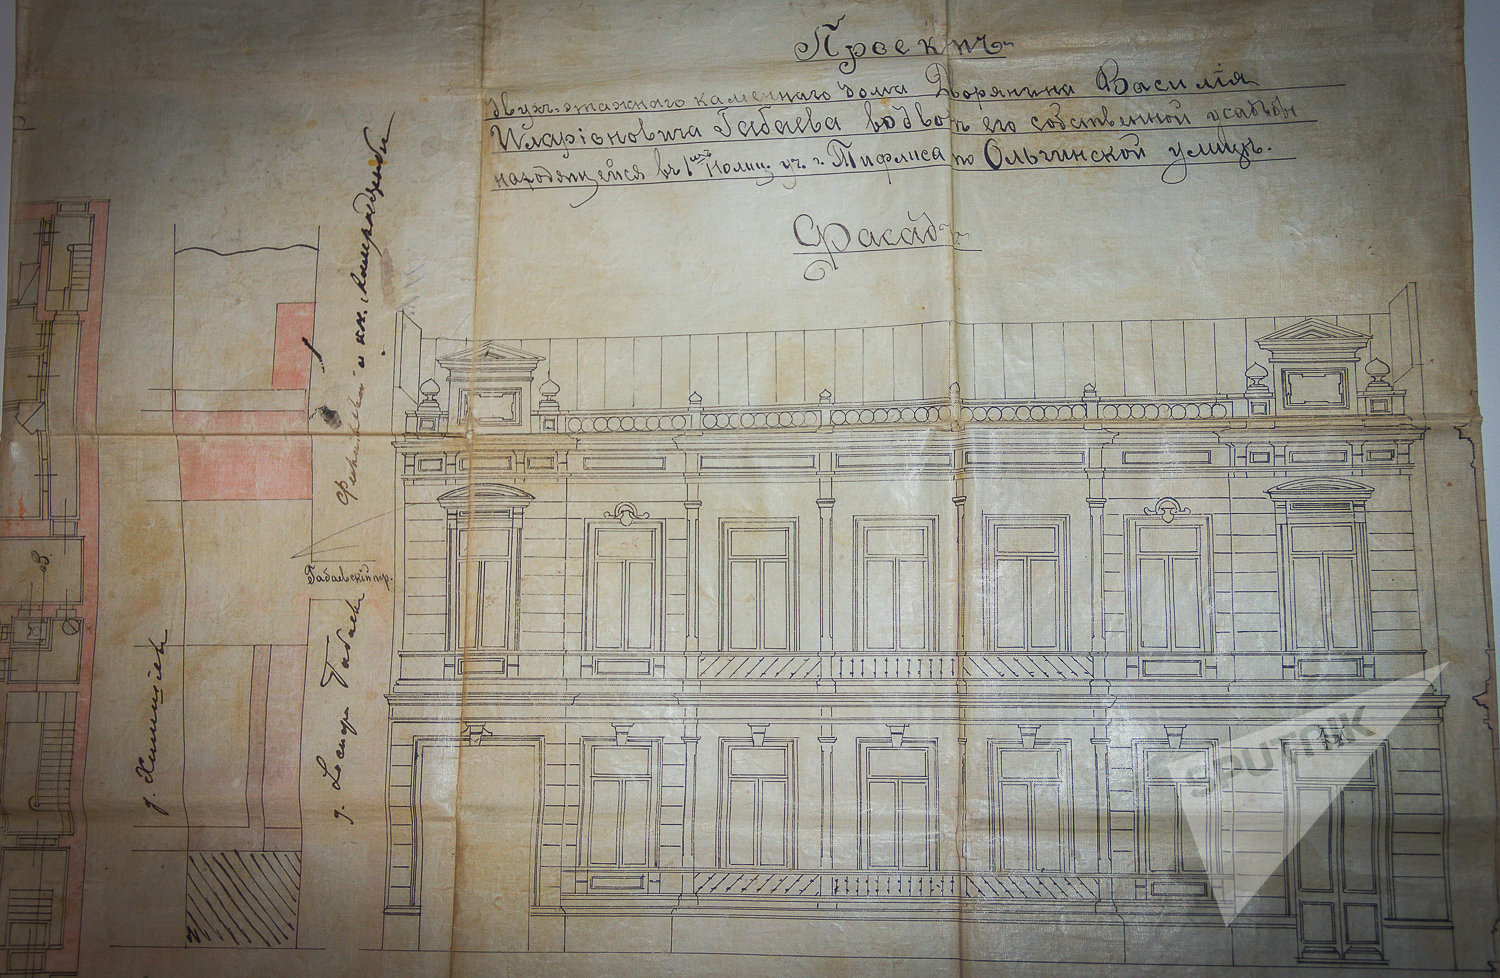 Проектъ
двухъ-этажнаго каменнаго дома Дворянина Василія
Иларіоновича Габаева во дворѣ его собственной усадьбы
находящейся въ 1 Полиц. уч. г. Тифлиса по Ольгинской улицѣ.
Фасадъ
Габаевскій пер.
Габаевъ
В.
SPUTNIK